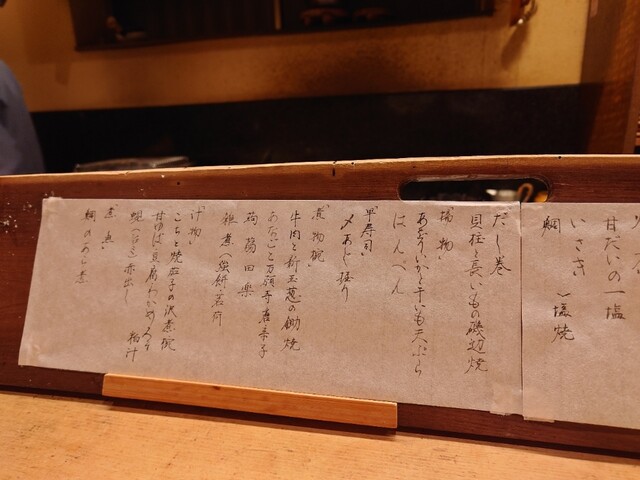 甘だいの一塩
いさき
鯛 〉塩焼
だし巻
貝柱と長いもの磯辺焼
揚物
あおりいかと干いも天ぷら
はんぺん
早寿司
〆あじ握り
煮物椀
牛肉と新玉葱の鋤焼
あなごと万願寺唐辛子
蒟蒻田楽
雑煮
汁物
こちと焼茄子の沢煮椀
甘ゆば豆腐わかめ
赤出し
粕汁
煮魚
鯛のあら煮